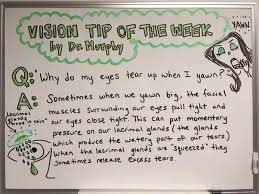 VISION TIP OF THE WEEK
by Dr. Murphy
YAWN
Q: Why do my eyes tear up when I yawn?
A: Sometimes when we yawn big, the facial
muscles surrounding our eyes pull tight and
our eyes close tight. This can put momentary
pressure on our lacrimal glands (the glands
which produce the watery part of our tears)
When the lacrimal glands are "squeezed" they
sometimes release excess tears.
lacrimal
glands